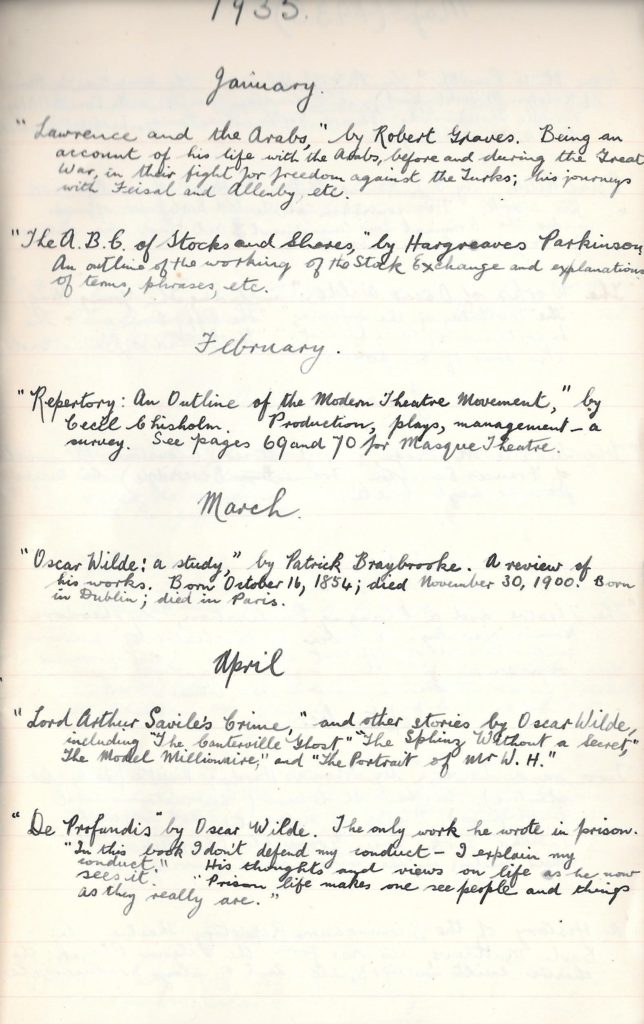 1935.
January.
"Lawrence and the Arabs," by Robert Graves. Being an
account of his life with the Arabs, before and during the Great
War, in their fight for freedom against the Turks; his journeys
with Feisal and Allenby, etc.
"The A.B.C. of Stocks and Shares," by Hargreaves Parkinson
An outline of the working of the Stock Exchange and explanations
of terms, phrases, etc.
February.
"Repertory: An Outline of the Modern Theatre Movement," by
Cecil Chisholm. Production, plays, management – a
survey. See pages 69 and 70 for Masque Theatre.
March.
"Oscar Wilde: a study," by Patrick Braybrooke. A review of
his works. Born October 16, 1854; died November 30, 1900. Born
in Dublin; died in Paris.
April
"Lord Arthur Savile's Crime," and other stories by Oscar Wilde,
including "The Canterville Ghost" "The Sphinz Without a Secret,"
"The Model Millionaire," and "The Portrait of Mr W. H."
"De Profundis" by Oscar Wilde. The only work he wrote in prison.
"In this book I don't defend my conduct – I explain my
conduct." His thoughts and views on life as he now
sees it. "Prison life makes one see people and things
as they really are."